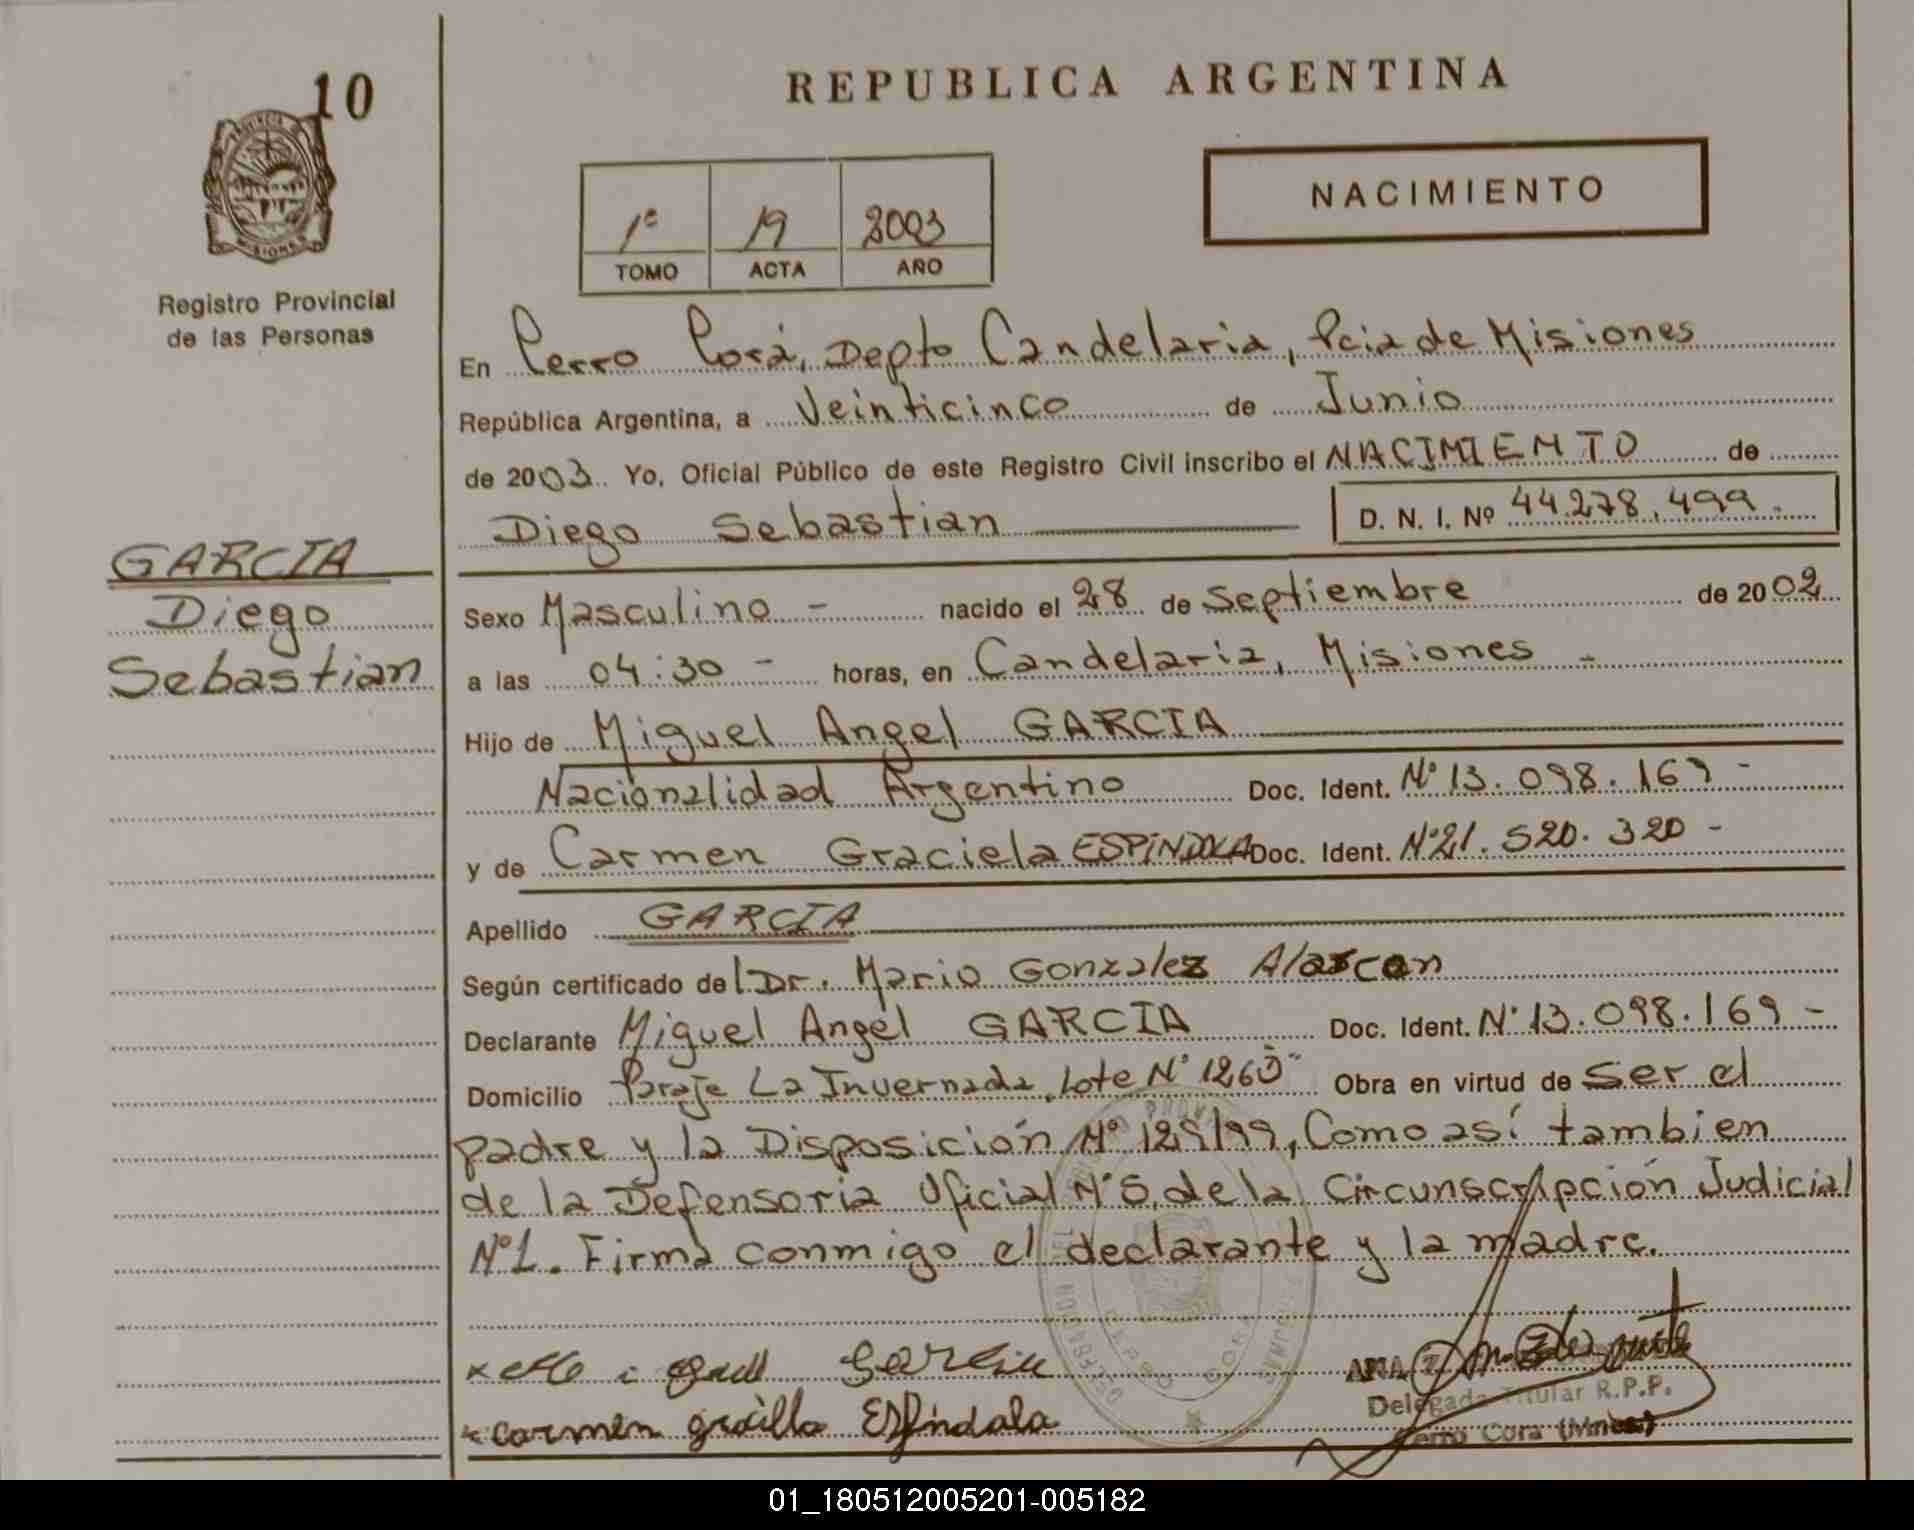 10
REPUBLICA ARGENTINA
NACIMIENTO
1º 19 2003
TOMO ACTA AÑO
PROVINCIA DE MISIONES
Registro Provincial
de las Personas
En Cerro Corá, Depto Candelaria, Pcia de Misiones
República Argentina, a Veinticinco de Junio
de 2003. Yo, Oficial Público de este Registro Civil inscribo el NACIMIENTO de
Diego Sebastian D. N. I. Nº 44.278.499.
GARCIA
Diego
Sebastian
Sexo Masculino - nacido el 28 de Septiembre de 2002
a las 04:30 - horas, en Candelaria, Misiones -
Hijo de Miguel Angel GARCIA
Nacionalidad Argentino Doc. Ident. Nº 13.098.169 -
y de Carmen Graciela ESPINDOLA Doc. Ident. Nº 21.520.320 -
Apellido GARCIA
Según certificado del Dr. Mario Gonzalez Alarcon
Declarante Miguel Angel GARCIA Doc. Ident. Nº 13.098.169 -
Domicilio Paraje La Invernada, Lote Nº 126 Obra en virtud de Ser el
padre y la Disposición Nº /99, Como así tambien
de la Defensoria Oficial Nº 5, de la Circunscripción Judicial
Nº 1. Firma conmigo el declarante y la madre.
Garcia
carmen Espindala
ANA
Delegada Titular R.P.P.
Cerro Cora (Mnes.)
CERRO CORA
01_180512005201-005182